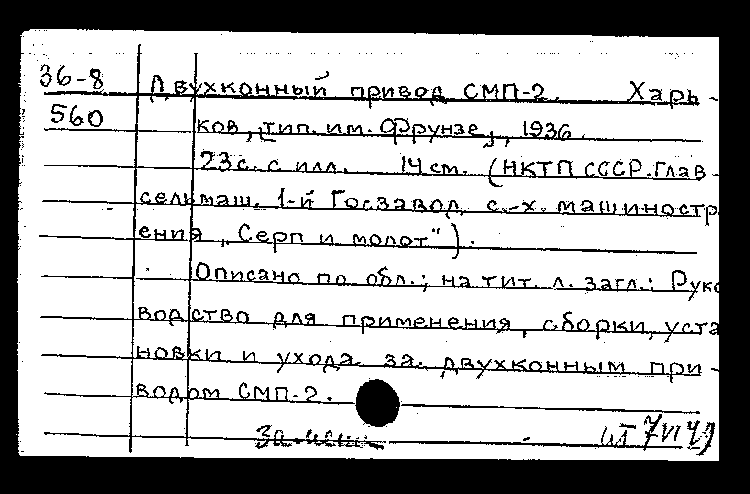 36-8 Двухконный привод СМП-2. Харь-
560 ков, [тип. им. Фрунзе], 1936.
23 с. с илл. 14 см. (НКТП СССР. Глав-
сельмаш. 1-й Госзавод с.-х. машиностр
ения „Серп и молот").
Описано по обл.; на тит. л. загл.: Руко
водство для применения, сборки, уста
новки и ухода за двухконным при-
водом СМП-2.